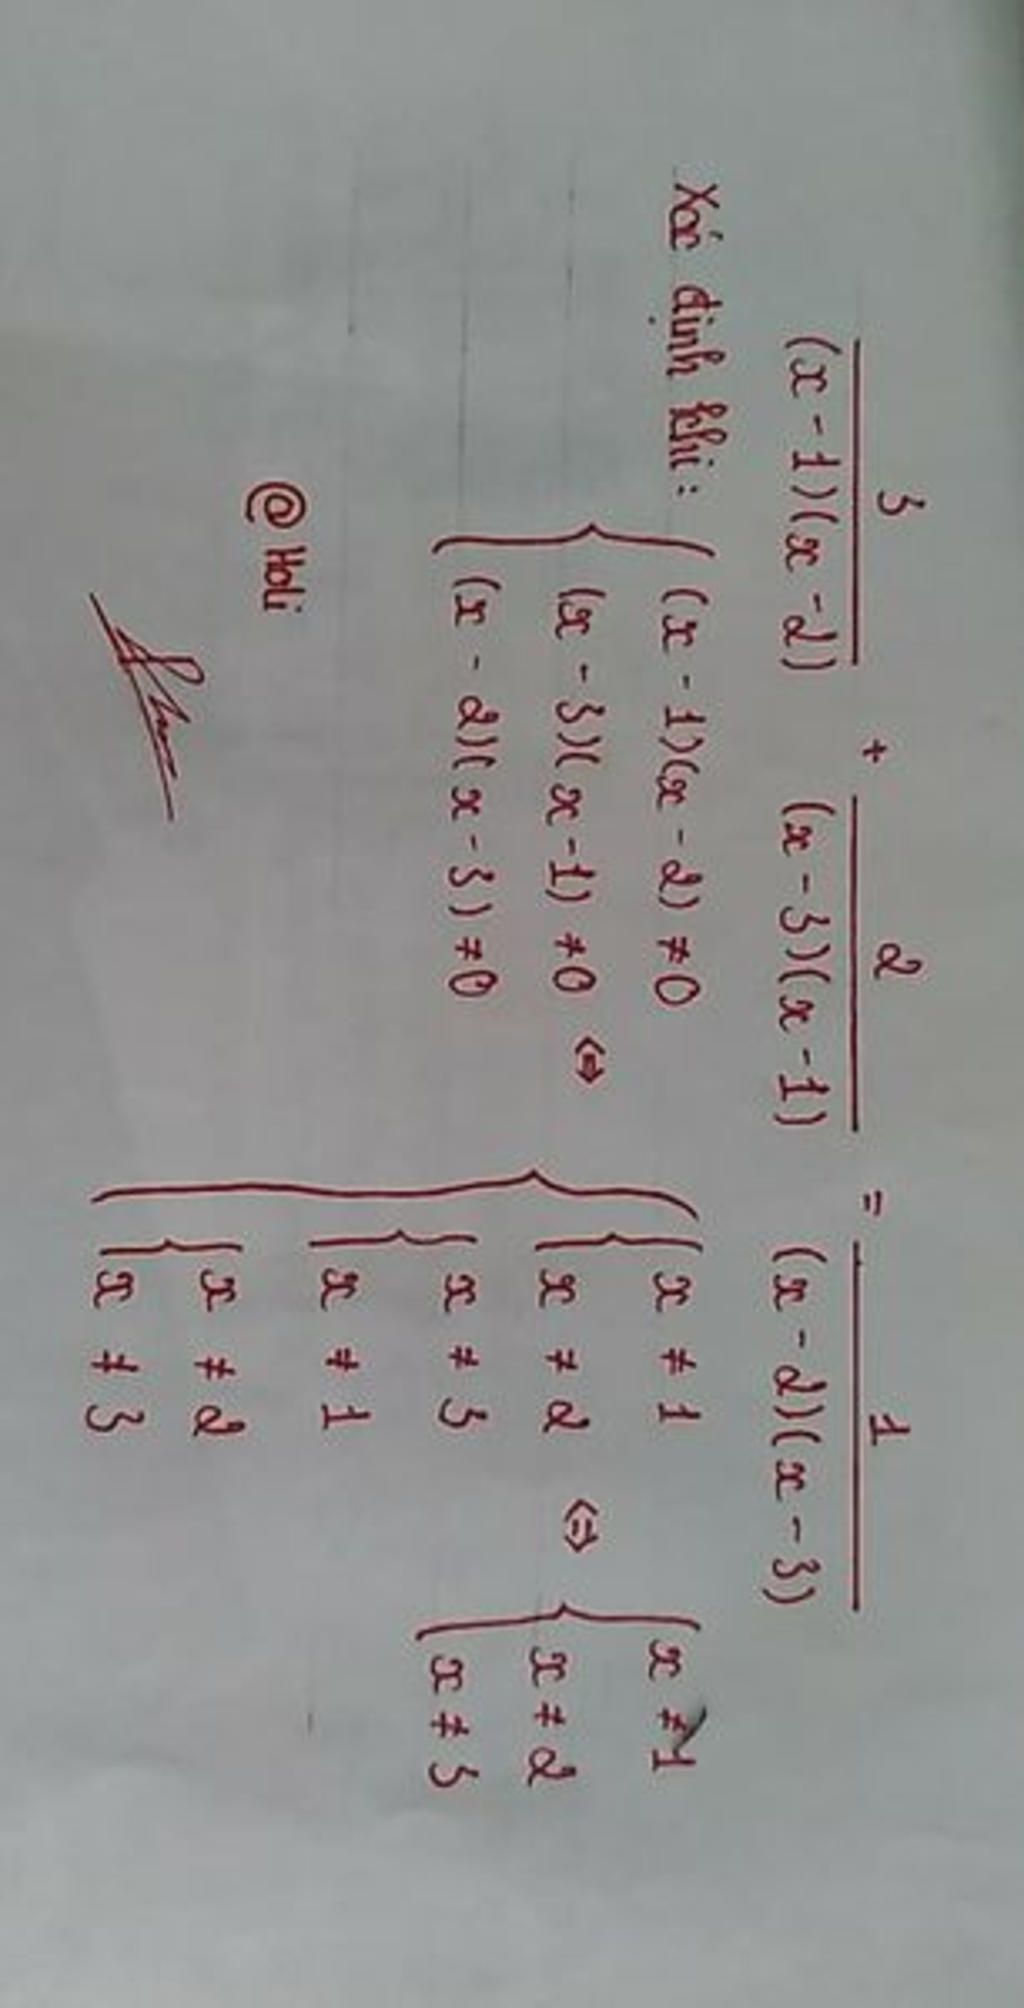 3/((x-1)(x-2)) + 2/((x-3)(x-1)) = 1/((x-2)(x-3))
Xác định khi: { (x-1)(x-2) ≠ 0
(x-3)(x-1) ≠ 0 <=>
(x-2)(x-3) ≠ 0
{ { x ≠ 1
x ≠ 2
{ x ≠ 3
x ≠ 1
{ x ≠ 2
x ≠ 3
<=> { x ≠ 1
x ≠ 2
x ≠ 3
@ Holi